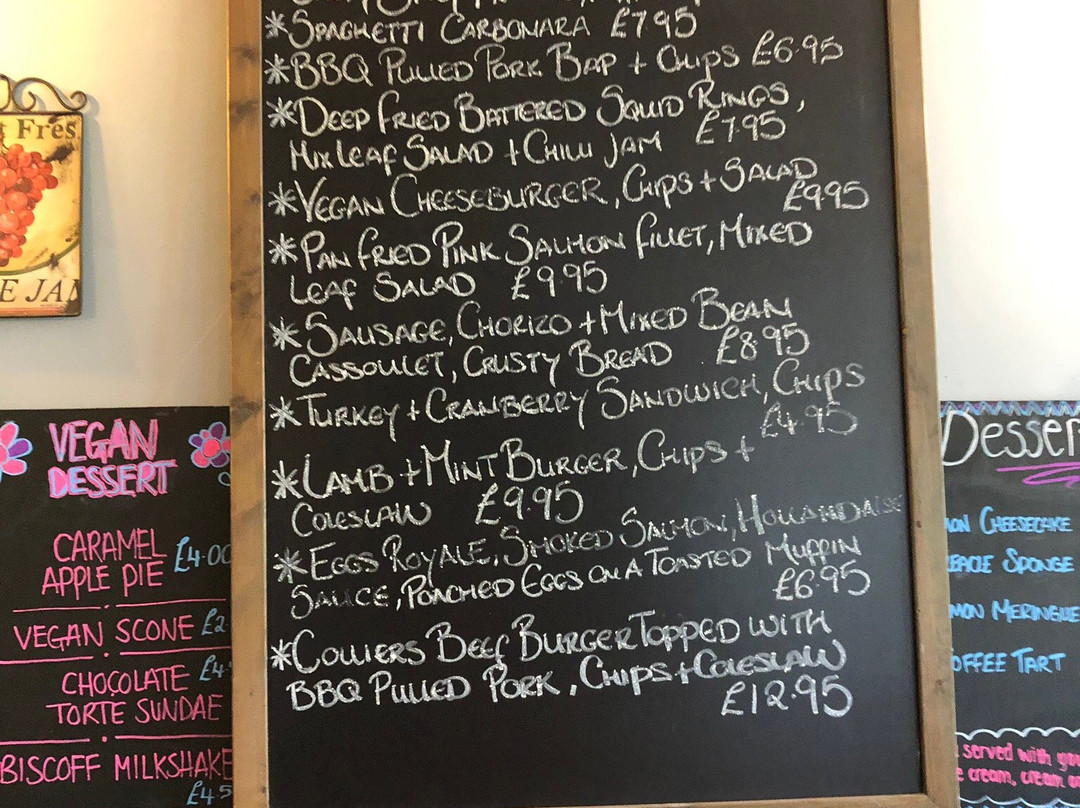 * Spaghetti Carbonara £7.95
* BBQ Pulled Pork Bap + Chips £6.95
* Deep Fried Battered Squid Rings,
Mix Leaf Salad + Chilli Jam £7.95
* Vegan Cheeseburger, Chips + Salad
£9.95
* Pan Fried Pink Salmon Fillet, Mixed
Leaf Salad £9.95
* Sausage, Chorizo + Mixed Bean
Cassoulet, Crusty Bread £8.95
* Turkey + Cranberry Sandwich, Chips
£4.95
* Lamb + Mint Burger, Chips +
Coleslaw £9.95
* Eggs Royale, Smoked Salmon, Hollandaise
Sauce, Poached Eggs on a Toasted Muffin
£6.95
* Colliers Beef Burger Topped with
BBQ Pulled Pork, Chips + Coleslaw
£12.95
VEGAN
DESSERT
CARAMEL
APPLE PIE £4.00
VEGAN SCONE £2
CHOCOLATE £4
TORTE SUNDAE
BISCOFF MILKSHAKE
£4.5
Desser
Cheesecake
Sponge
Meringue
Tart
served with
cream, cream
Fres
E JA